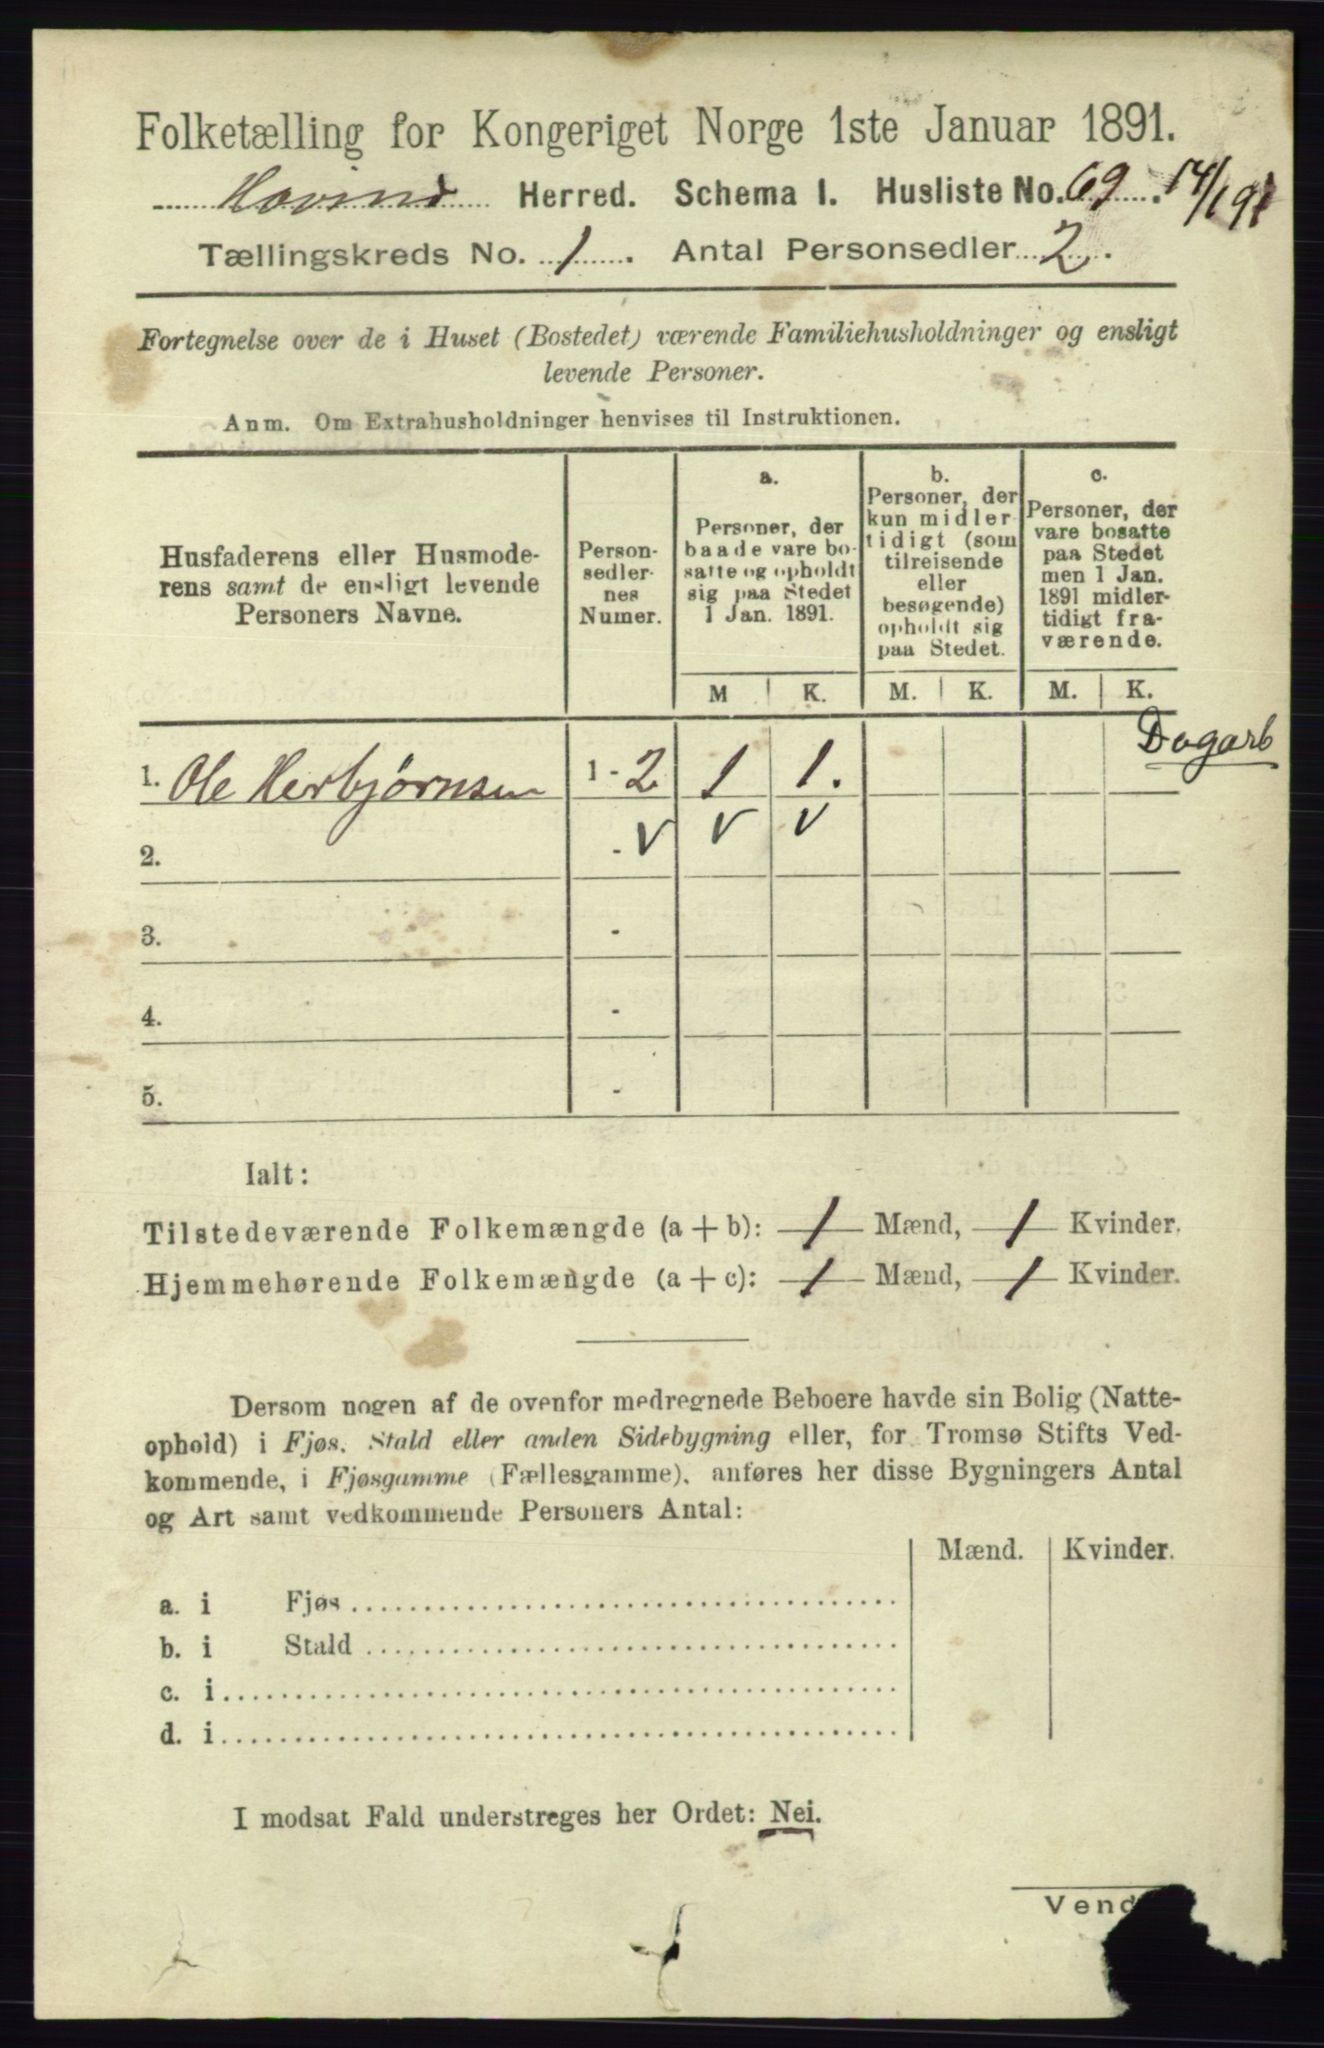 Folketælling for Kongeriget Norge 1ste Januar 1891.
Hovind Herred. Schema I. Husliste No. 69. 14/1 91
Tællingskreds No. 1. Antal Personsedler 2.
Fortegnelse over de i Huset (Bostedet) værende Familiehusholdninger og ensligt
levende Personer.
Anm. Om Extrahusholdninger henvises til Instruktionen.
Husfaderens eller Husmode-
rens samt de ensligt levende
Personers Navne.
Person-
sedler-
nes
Numer.
a.
Personer, der
baade vare bo-
satte og opholdt
sig paa Stedet
1 Jan. 1891.
b.
Personer, der
kun midler-
tidigt (som
tilreisende
eller
besøgende)
opholdt sig
paa Stedet.
c.
Personer, der
vare bosatte
paa Stedet
men 1 Jan.
1891 midler-
tidigt fra-
værende.
M K. M. K. M. K.
Dagarb
1. Ole Herbjørnsen 1 - 2 1 1.
2. - v v v
3. -
4. -
5. -
Ialt:
Tilstedeværende Folkemængde (a + b): 1 Mænd, 1 Kvinder.
Hjemmehørende Folkemængde (a + c): 1 Mænd, 1 Kvinder.
Dersom nogen af de ovenfor medregnede Beboere havde sin Bolig (Natte-
ophold) i Fjøs, Stald eller anden Sidebygning eller, for Tromsø Stifts Ved-
kommende, i Fjøsgamme (Fællesgamme), anføres her disse Bygningers Antal
og Art samt vedkommende Personers Antal:
Mænd. Kvinder.
a. i Fjøs
b. i Stald
c. i
d. i
I modsat Fald understreges her Ordet: Nei.
Vend